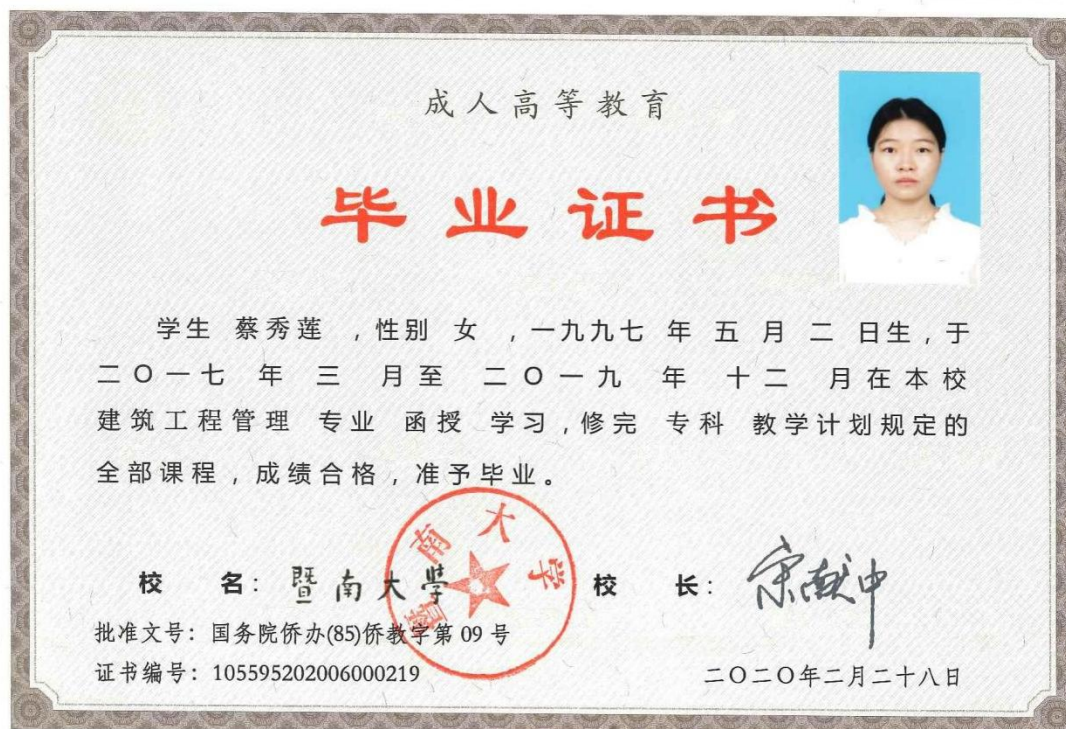 成人高等教育
毕业证书
学生 蔡秀莲 ，性别 女 ，一九九七 年 五 月 二 日生，于
二〇一七 年 三 月至 二〇一九 年 十二 月在本校
建筑工程管理 专业 函授 学习，修完 专科 教学计划规定的
全部课程，成绩合格，准予毕业。
暨南大学
校 名：暨南大學 校 长：宋献中
批准文号：国务院侨办(85)侨教字第 09 号
证书编号：105595202006000219 二〇二〇年二月二十八日